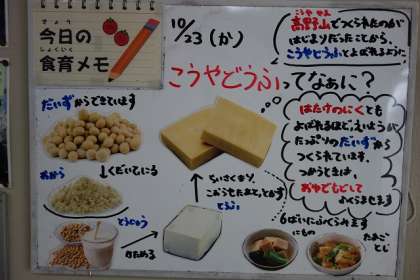 きょう
今日の
しょくいく
食育メモ
10/23(か)
こうや さん
高野山でつくられたのが
はじまりだったことから、
こうやどうふとよばれるように
こうやどうふってなあに?
だいずからできています
はたけのにくとも
よばれるほど、えいようが
たっぷりのだいずから
つくられています。
つかうときは、
おゆでもどして
ふくらませます
おから
↓くだいている
ちいさくきり、
こおらせたあと、
とうふ
とうにゅう
かためる
6ばいにふくらみます
にもの
たまご
とじ